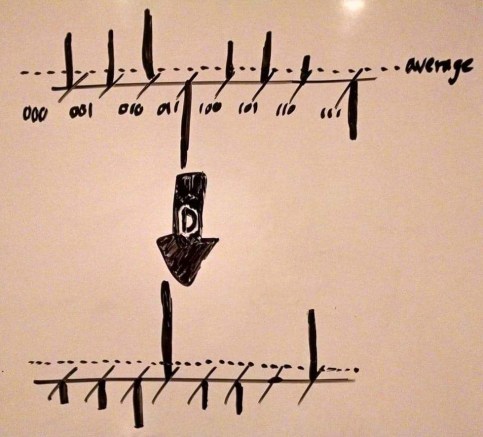 average
000 001 010 011 100 101 110 111
D